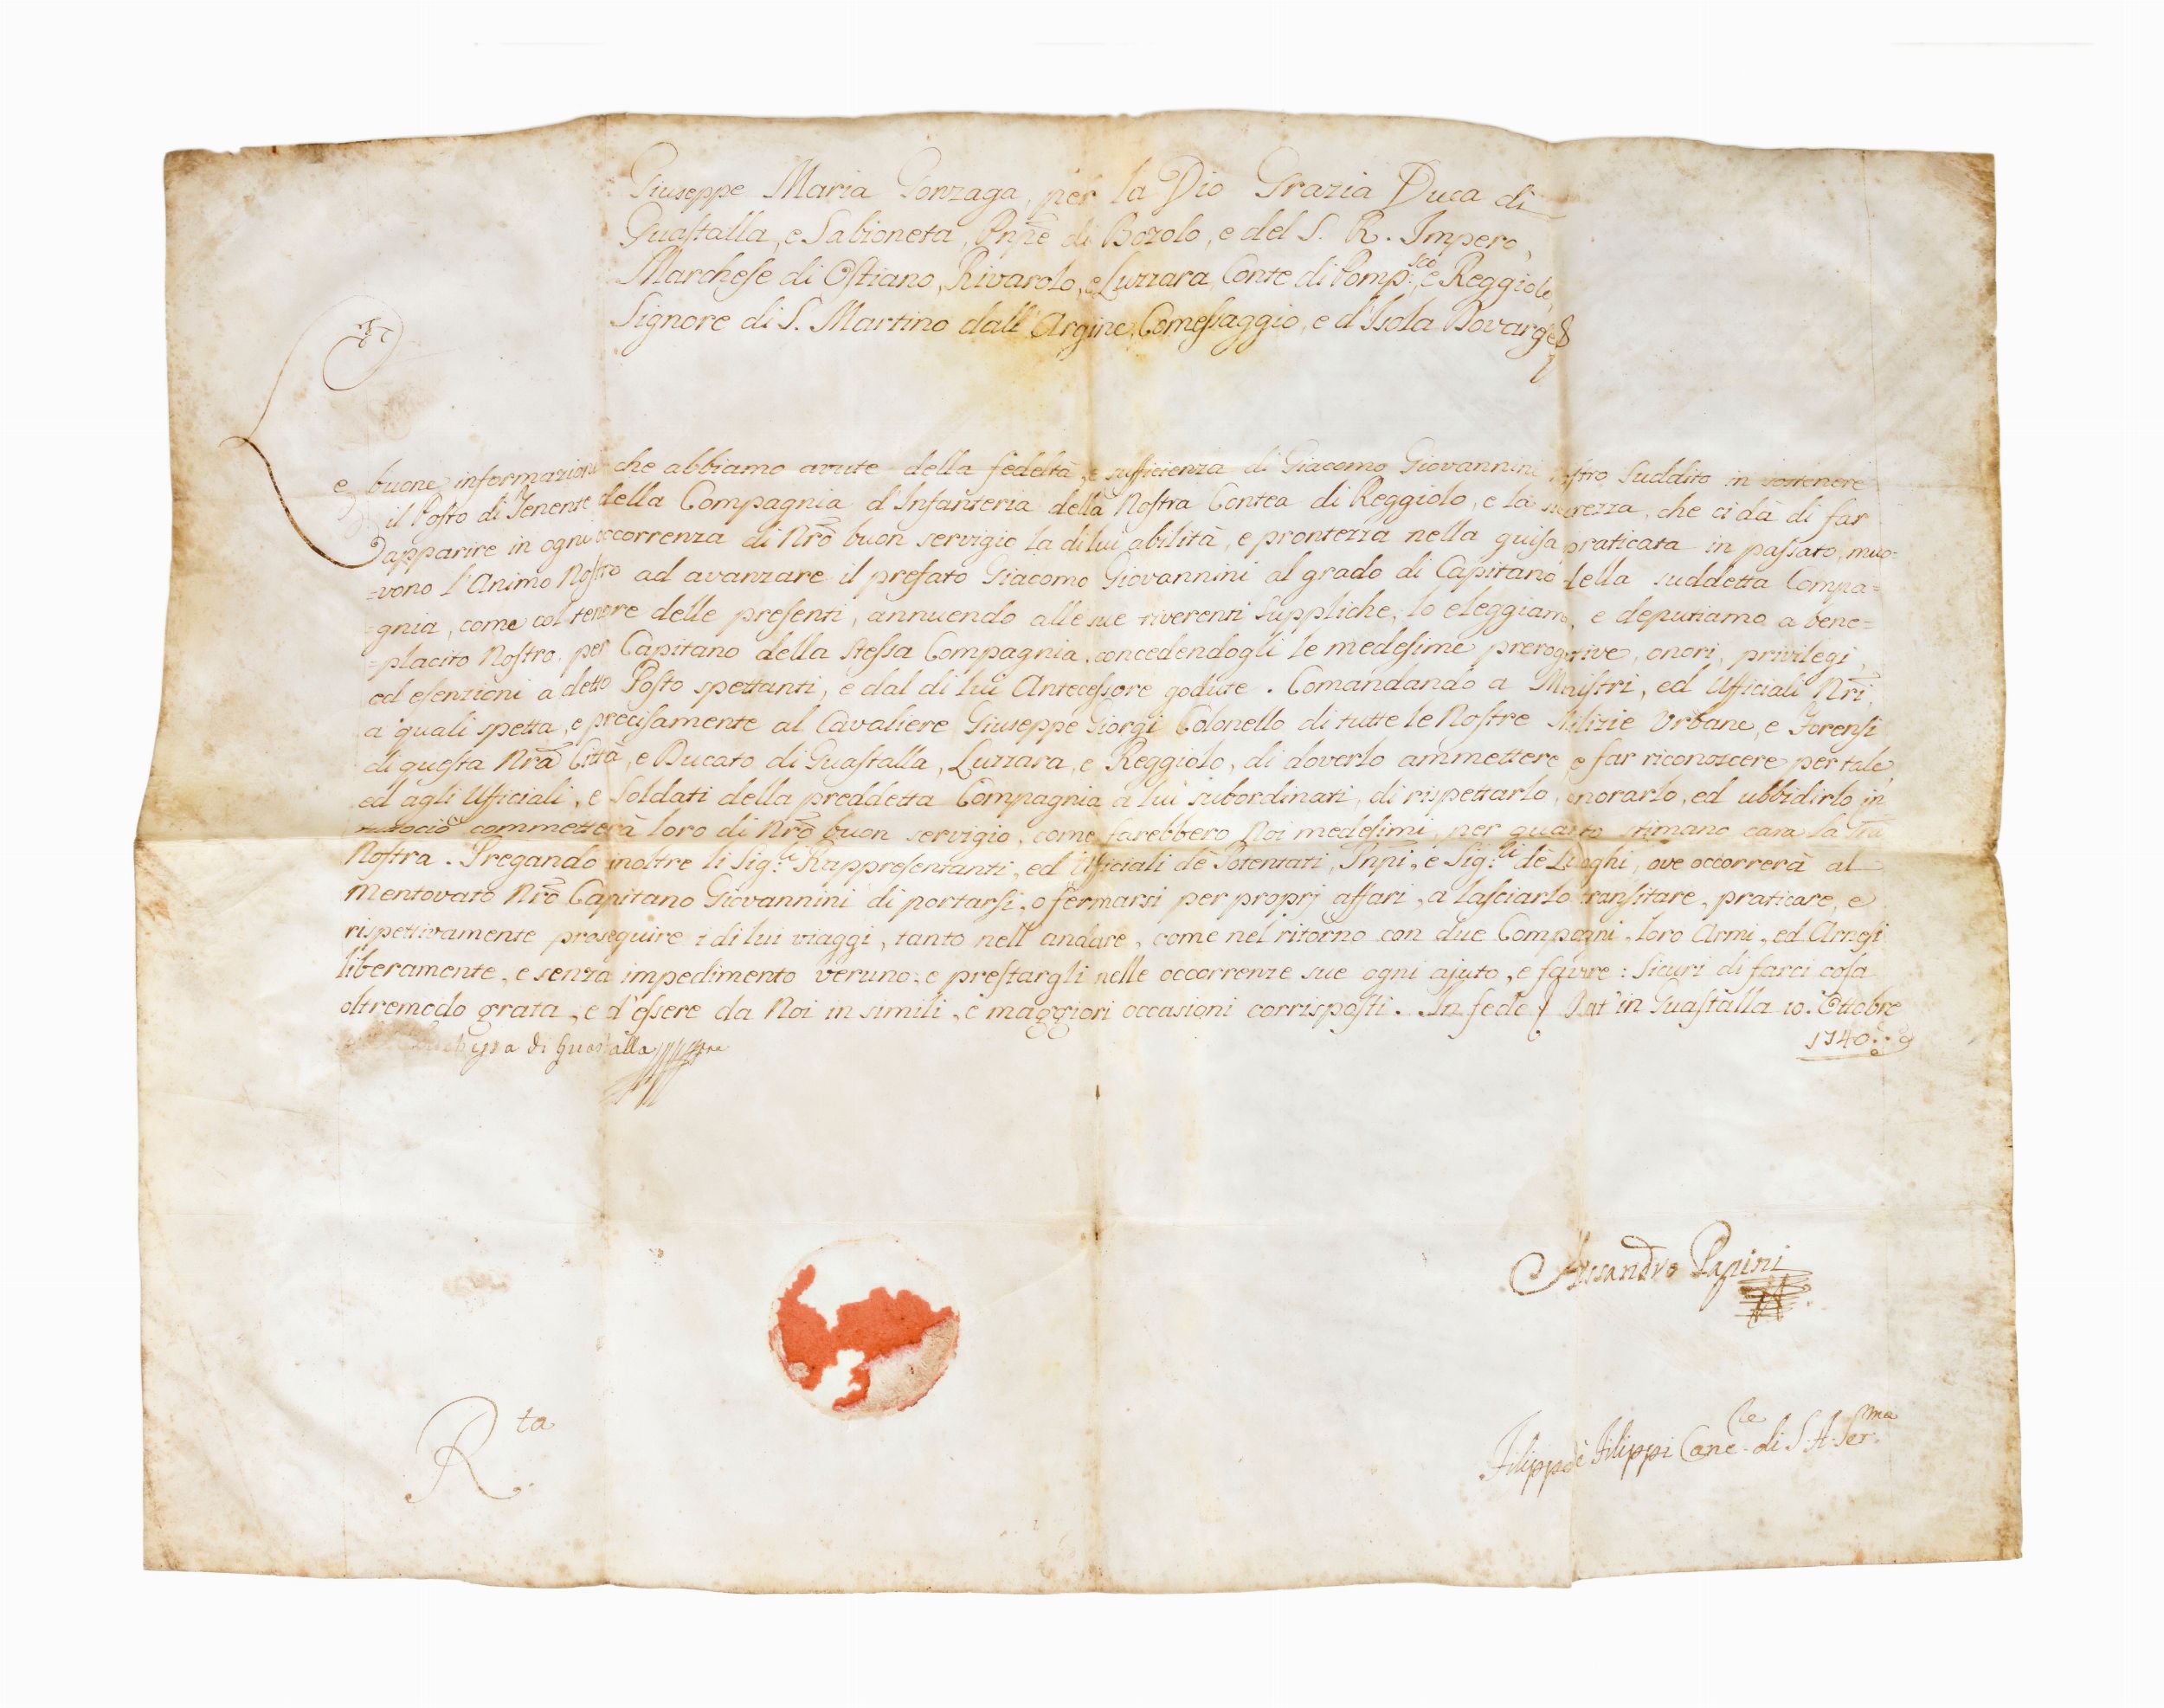 Giuseppe Maria Gonzaga, per la Dio Grazia Duca di
Guastalla, e Sabioneta, Pnpe di Bozolo, e del S. R. Impero,
Marchese di Ostiano, Rivarolo, e Luzzara, Conte di Pomp:sco, e Reggiolo,
Signore di S. Martino dall'Argine, Comessaggio, e d'Isola Dovarese &
Le buone informazioni che abbiamo avute della fedeltà, e sufficienza di Giacomo Giovannini nostro Suddito in sostenere
il Posto di Tenente della Compagnia d'Infanteria della Nostra Contea di Reggiolo, e la sicurezza, che ci dà di far
apparire in ogni occorrenza di Nrõ buon servigio la di lui abilità, e prontezza nella guisa praticata in passato, muo=
=vono l'Animo Nostro ad avanzare il prefato Giacomo Giovannini al grado di Capitano della suddetta Compa=
=gnia, come col tenore delle presenti, annuendo alle sue riverenti suppliche, lo eleggiamo, e deputiamo a bene=
=placito Nostro per Capitano della stessa Compagnia, concedendogli le medesime prerogative, onori, privilegi,
ed esenzioni a detto Posto spettanti, e dal di lui Antecessore godute. Comandando a Ministri, ed Ufficiali Nrĩ,
a' quali spetta, e precisamente al Cavaliere Giuseppe Giorgi Colonello di tutte le Nostre Milizie Urbane, e Forensi
di questa Nrã Città, e Ducato di Guastalla, Luzzara, e Reggiolo, di doverlo ammettere, e far riconoscere per tale,
ed agli Ufficiali, e Soldati della preddetta Compagnia a lui subordinati, di rispettarlo, onorarlo, ed ubbidirlo in
tuttociò commetterà loro di Nrõ buon servigio, come farebbero Noi medesimi, per quanto stimano cara la
Nostra. Pregando inoltre li Sig:ri Rappresentanti, ed Ufficiali dè Potentati, Pnpi, e Sig:ri dè Luoghi, ove occorrerà al
mentovato Nrõ Capitano Giovannini di portarsi, o fermarsi per proprj affari, a lasciarlo transitare, praticare, e
rispettivamente proseguire i di lui viaggi, tanto nell'andare, come nel ritorno con due Compagni, loro Armi, ed Arnesi
liberamente, e senza impedimento veruno, e prestargli nelle occorrenze sue ogni ajuto, e favore: Sicuri di farci cosa
oltremodo grata, e d'essere da Noi in simili, e maggiori occasioni corrisposti. In fede & Dat' in Guastalla 10. Ottobre
1740
Duchessa di Guastalla
Alessandro Papini
Rta
Filippo de Filippi Canc.re di S. A. Ser.ma